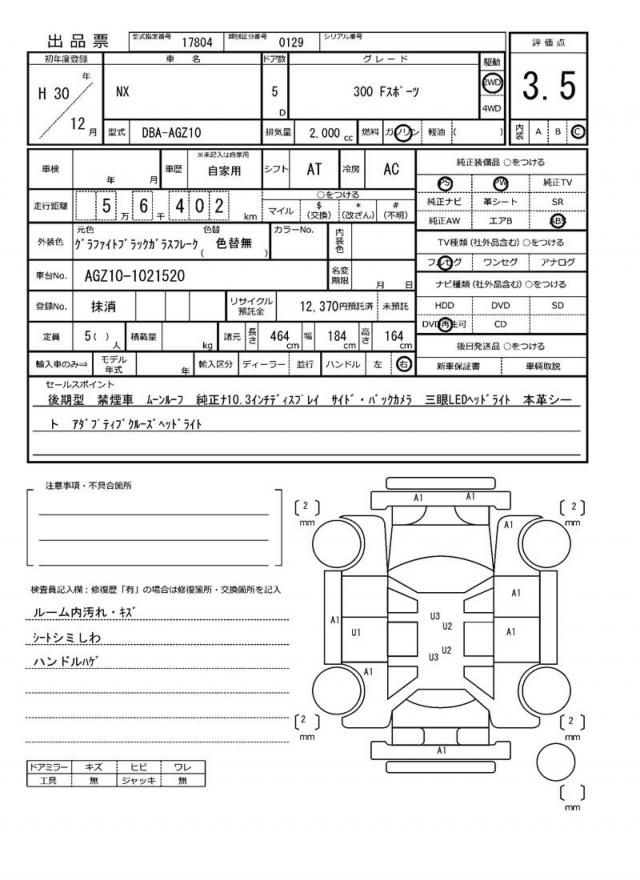 出品票 型式指定番号 17804 類別区分番号 0129 シリアル番号
評価点
3.5
内装 A B C
初年度登録 車名 ドア数 グレード 駆動
H 30 年 12 月
NX 5 D 300 Fスポーツ 2WD 4WD
型式 DBA-AGZ10 排気量 2,000 cc 燃料 ガソリン 軽油 ( )
車検 年 月 車歴 ※未記入は自家用 自家用 シフト AT 冷房 AC
走行距離 5 万 6 千 4 0 2 km
○をつける
マイル $ (交換) * (改ざん) # (不明)
外装色 元色 グラファイトブラックガラスフレーク 色替 ( 色替無 ) カラーNo. 内装色
車台No. AGZ10-1021520 名変期限 月 日
登録No. 抹消 リサイクル預託金 12,370円預託済 未預託
定員 5( ) 人 積載量 kg 諸元 長さ 464 cm 幅 184 cm 高さ 164 cm
輸入車のみ⇒ モデル年式 年 輸入区分 ディーラー 並行 ハンドル 左 右
純正装備品 ○をつける
PS PW 純正TV
純正ナビ 革シート SR
純正AW エアB ABS
TV種類 (社外品含む) ○をつける
フルセグ ワンセグ アナログ
ナビ種類 (社外品含む) ○をつける
HDD DVD SD
DVD再生可 CD
後日発送品 ○をつける
新車保証書 車輌取説
セールスポイント
後期型 禁煙車 ムーンルーフ 純正ナ10.3インチディスプレイ サイド・バックカメラ 三眼LEDヘッドライト 本革シー
ト アダプティブクルーズヘッドライト
注意事項・不具合箇所
検査員記入欄：修復歴「有」の場合は修復箇所・交換箇所を記入
ルーム内汚れ・キズ
シートシミしわ
ハンドルハゲ
ドアミラー キズ ヒビ ワレ
工具 無 ジャッキ 無
A1 A1
2 mm
2 mm
A1
A1
A1
U1
U3
U2
U2
U3
A1
A1
2 mm
2 mm
A1
mm